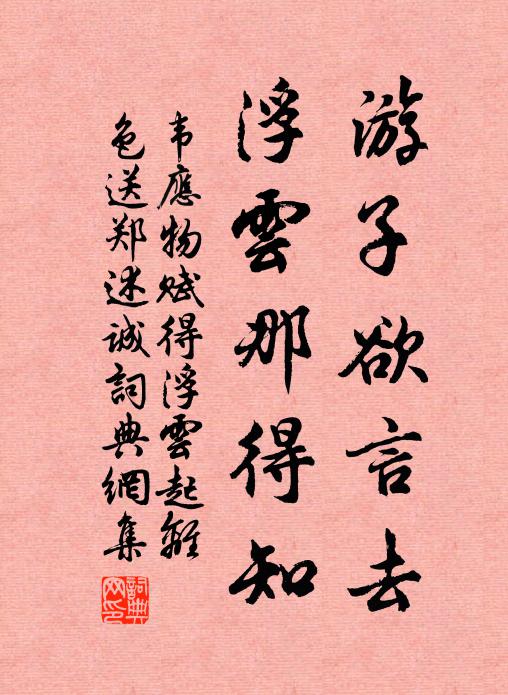 游子欲言去
浮雲那得知
韦應物赋得浮雲起離
色送郑述诚詞典網集
詞典網印